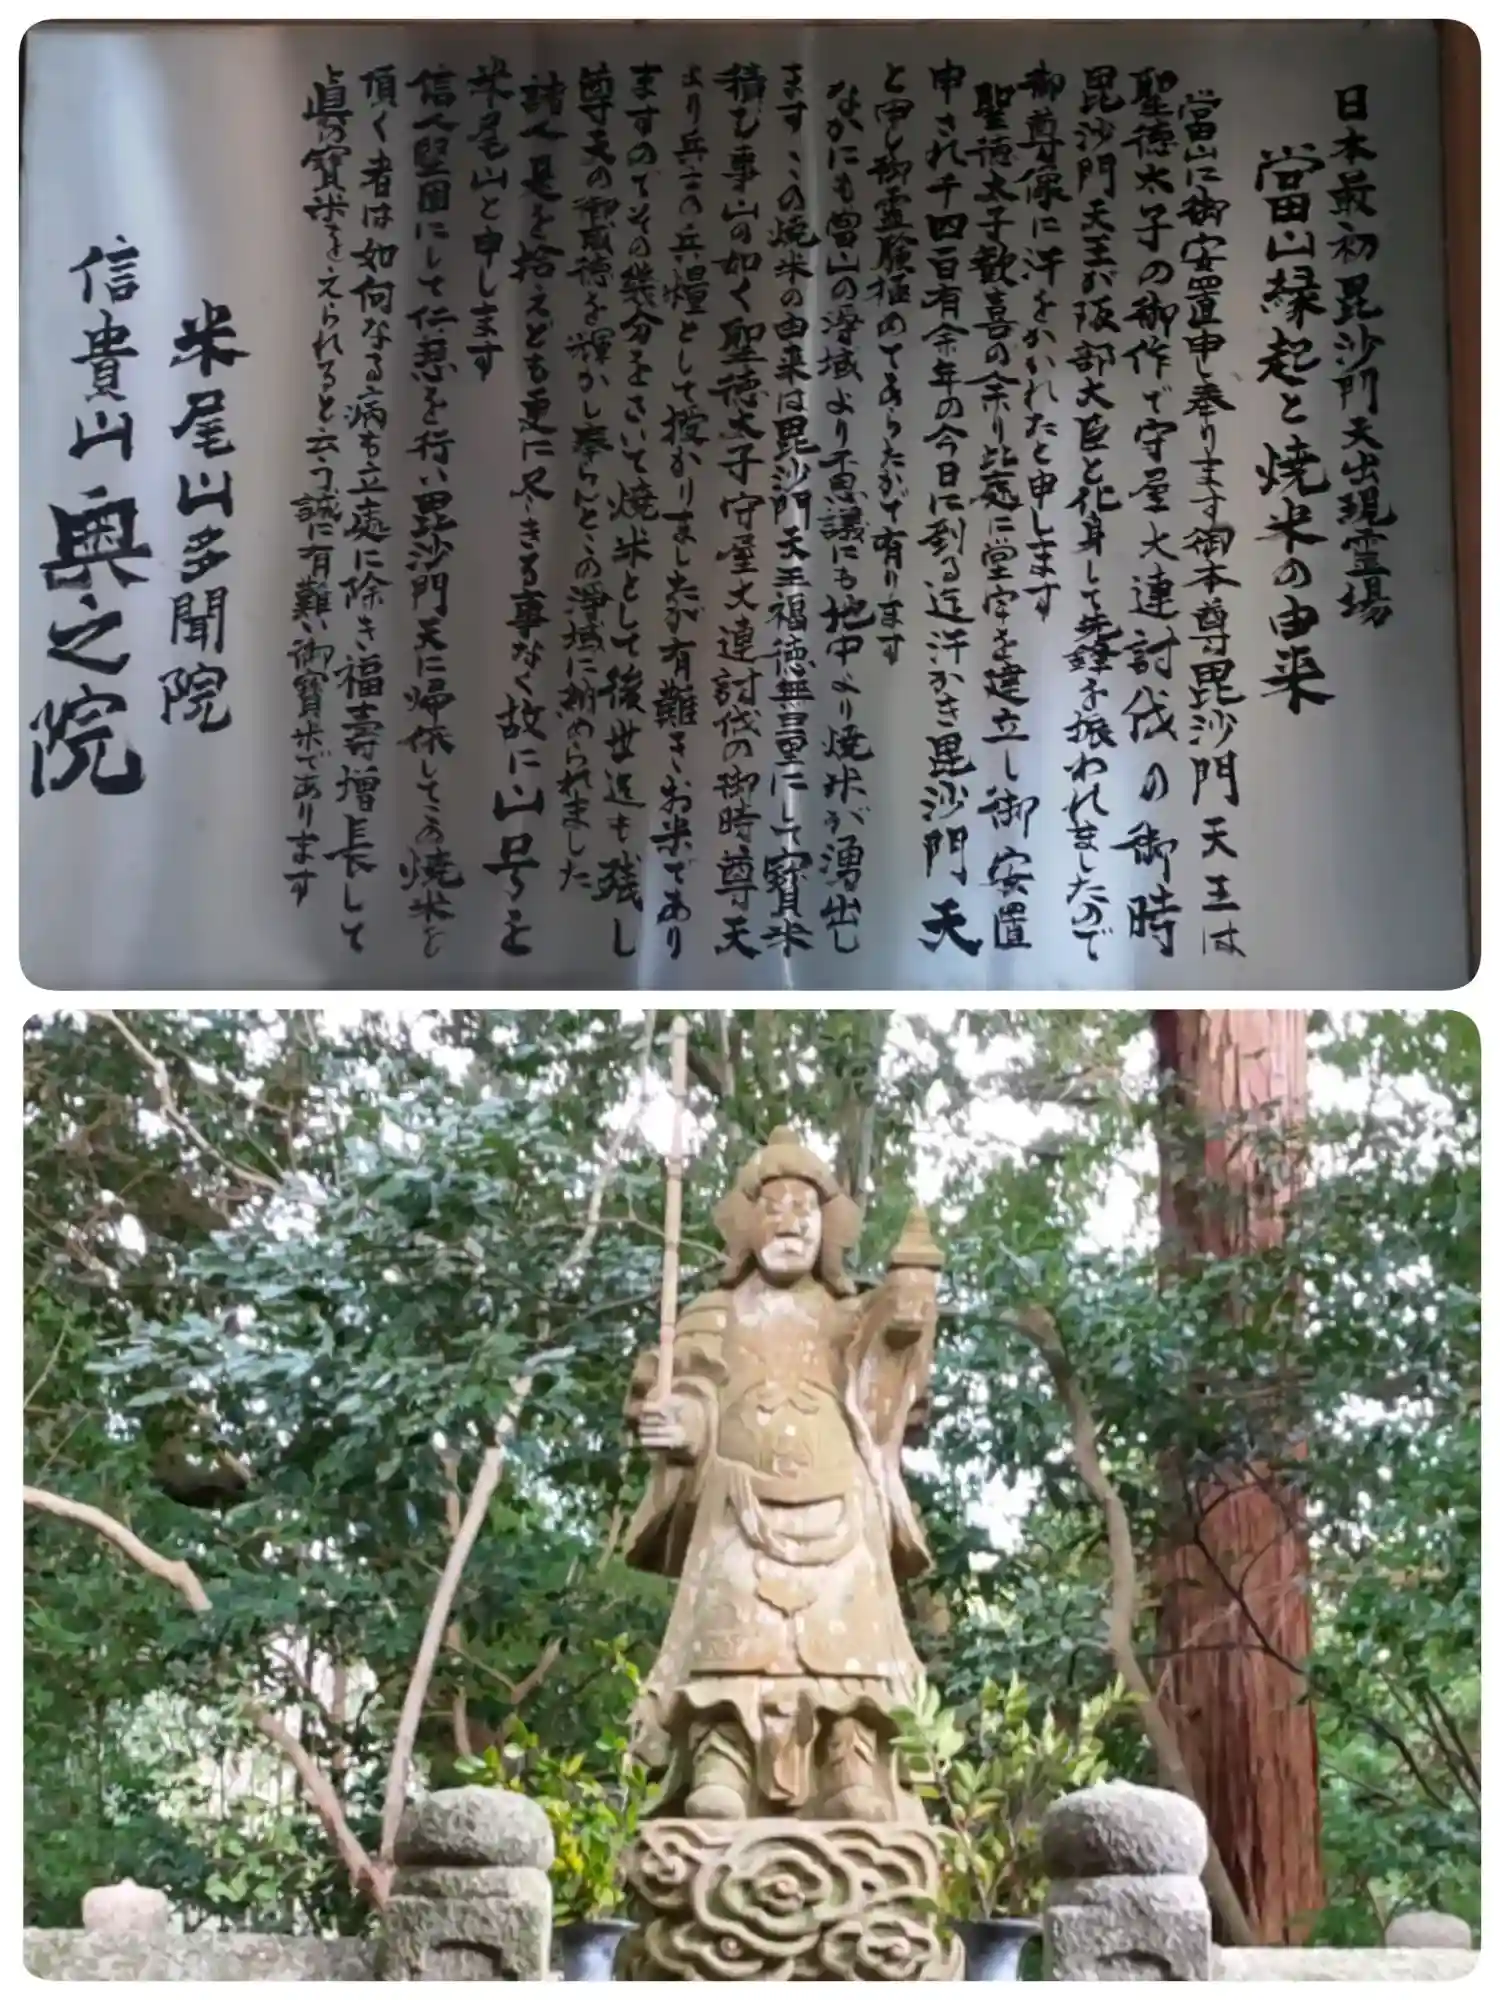 日本最初毘沙門天出現霊場
當山縁起と焼米の由来
當山に御安置申し奉ります御本尊毘沙門天王は
聖徳太子の御作で守屋大連討伐の御時
毘沙門天王が阪部大臣と化身して先鋒を振われましたので
御尊像に汗をかかれたと申します
聖徳太子歓喜の余り此處に堂宇を建立し御安置
申され千四百有余年の今日に到る迄汗かき毘沙門天
と申し御霊験極めてあらたかで有ります
なかにも當山の浄域より不思議にも地中より焼米が湧出し
ます、この焼米の由来は毘沙門天王福徳無量にして寳米
積む事山の如く聖徳太子守屋大連討伐の御時尊天
より兵士の兵糧として授かりましたが有難きお米であり
ますのでその幾分をさいて焼米として後世迄も残し
尊天の御威徳を輝かし奉らんとこの浄域に納められました
諸人是を拾えども更に尽きる事なく故に山号を
米尾山と申します
信心堅固にして仁恕を行い毘沙門天に帰依してこの焼米を
頂く者は如何なる病も立處に除き福壽増長して
眞の寳米をえられると云う誠に有難い御寳米であります
米尾山多聞院
信貴山奥之院